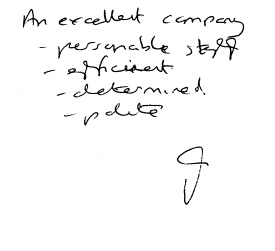 An excellent company
- personable staff
- efficient
- determined.
- polite